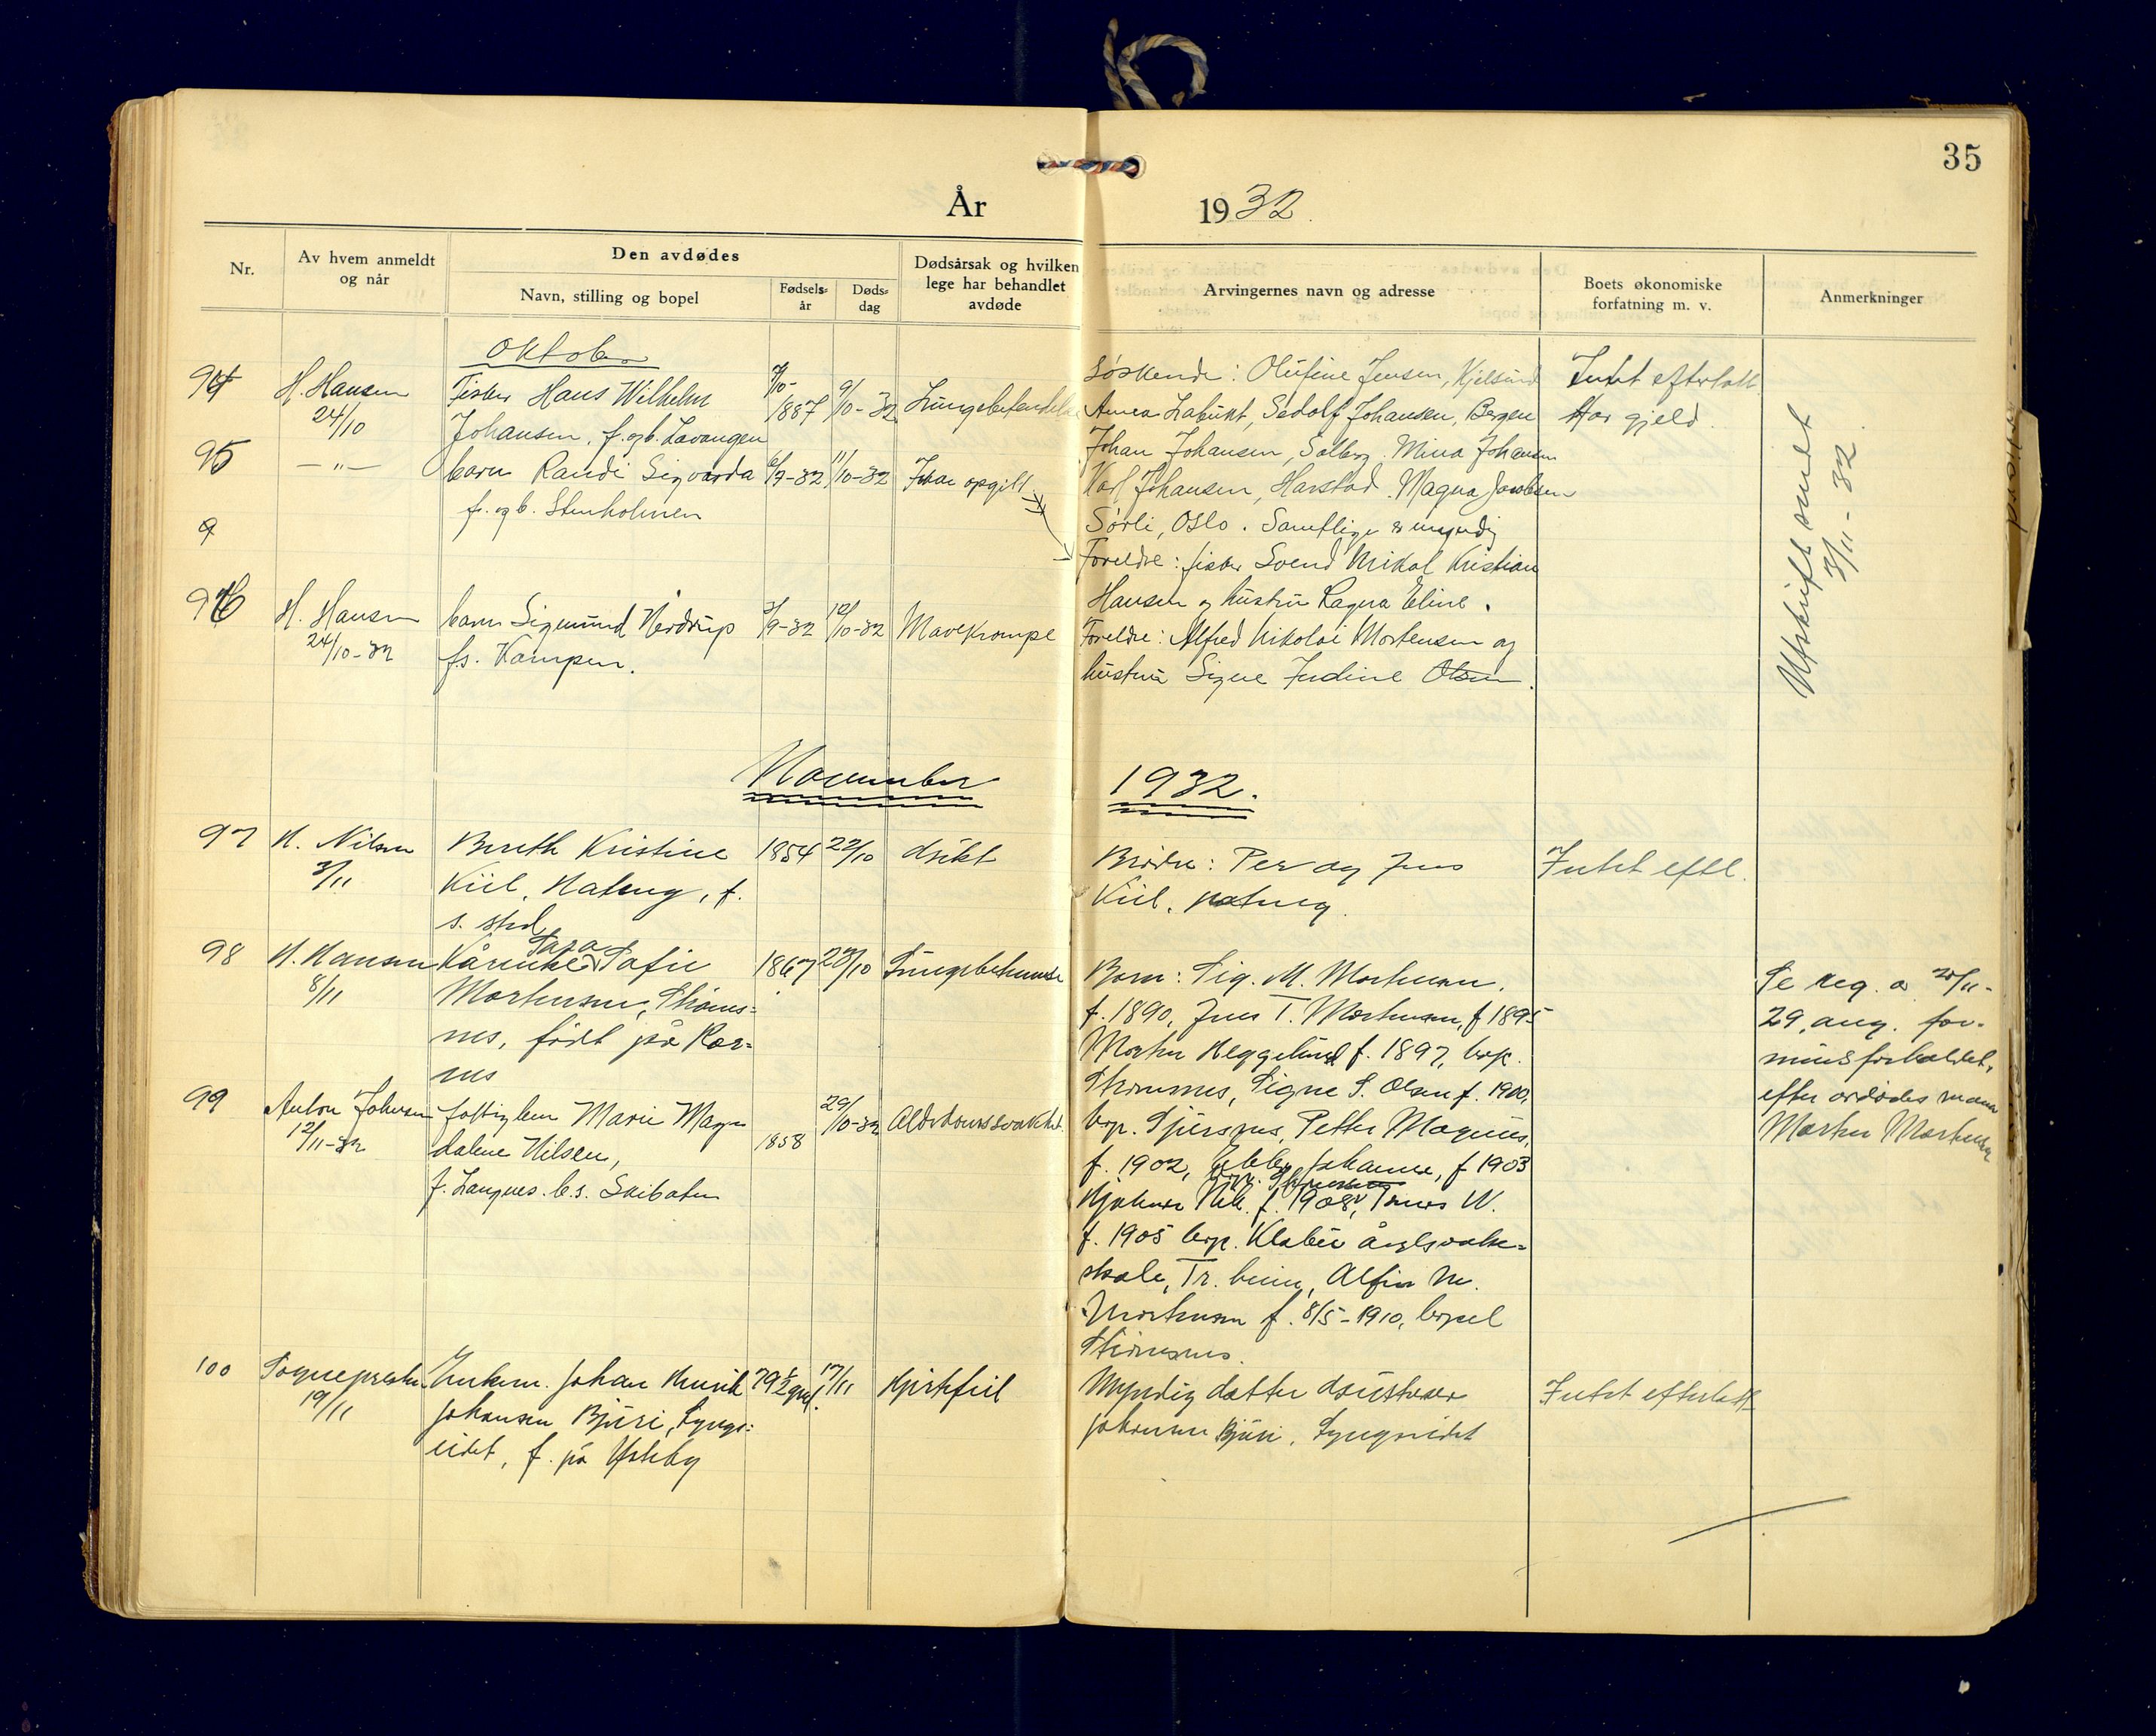 35
År 1932.
Nr.
Av hvem anmeldt
og når
Den avdødes
Navn, stilling og bopel
Fødsels-
år
Døds-
dag
Dødsårsak og hvilken
lege har behandlet
avdøde
Arvingernes navn og adresse
Boets økonomiske
forfatning m. v.
Anmerkninger
Oktober
94
H. Hansen
24/10
Fisker Hans Wilhelm
Johansen, f. og b. Lavangen
/10-
1887
9/10-32
Søskende: Olufine Jensen,
Labukt, Sedolf Johansen, Bergen
Johan Johansen, Solberg. Mina Johansen
Karl Johansen, Harstad. Magna Jacobsen
Sørli, Oslo. Samtlige er myndig
Intet efterlatt
Har gjeld.
Utskrift sendt
3/11-32.
95
— " —
barn Randi Sigvarda
f. og b. Stenholmen
6/9-32
11/10-32
Ikke opgitt
Foreldre: fisker Svend Mikal Kristian
Hansen og hustru Ragna Eline.
9
96
H. Hansen
24/10-32
barn Sigmund Nerdrup
fs. Kampen.
3/9-32
12/10-32
Mavekrampe
Foreldre: Alfred Nikolai Mortensen og
hustru Signe Indine Olsen.
November 1932.
97
H. Nilsen
3/11
Bereth Kristine
Kiil, Nateng, f.
s. sted
1854
22/10
Brødre: Per og Jens
Kiil, Nateng.
Intet eftl.
98
H. Hansen
8/11
Sara
Sofie
Mortensen, Strøms=
nes, født på Kor=
nes
1867
Born: Sig. M. Mortensen.
f. 1890, Jens T. Mortensen, f 1895
Morten Heggelund f. 1897, bop.
Strømsnes, Signe S. Olsen f. 1900,
bop. Spåersnes, Petter Magnus,
f. 1902, Johanne, f 1903
Hjalmar Nik. f. 1908,
f. 1905 bop. Klæbu
skole, Tr. heim, Alfin M.
Mortensen f. 8/5-1910, bopel
Strømsnes.
Se reg. a 20/11-
29, ang. for-
muesforholdet,
efter avdødes mann
Morten Mortensen
99
Anton Johnsen
12/11-32
fattiglem Marie Mag-
dalene Nilsen,
f. Langnes. b.s. Skibotn
1858
29/10-32
Alderdomssvakhet
100
Sognepresten
19/11
Enkem. Johan Henrik
Johansen Bjuri, Lyngs=
eidet, f. på Ysteby
79 1/2 gml.
17/11
Hjertefeil
Myndig datter
Johansen Bjuri, Lyngseidet
Intet efterlatt